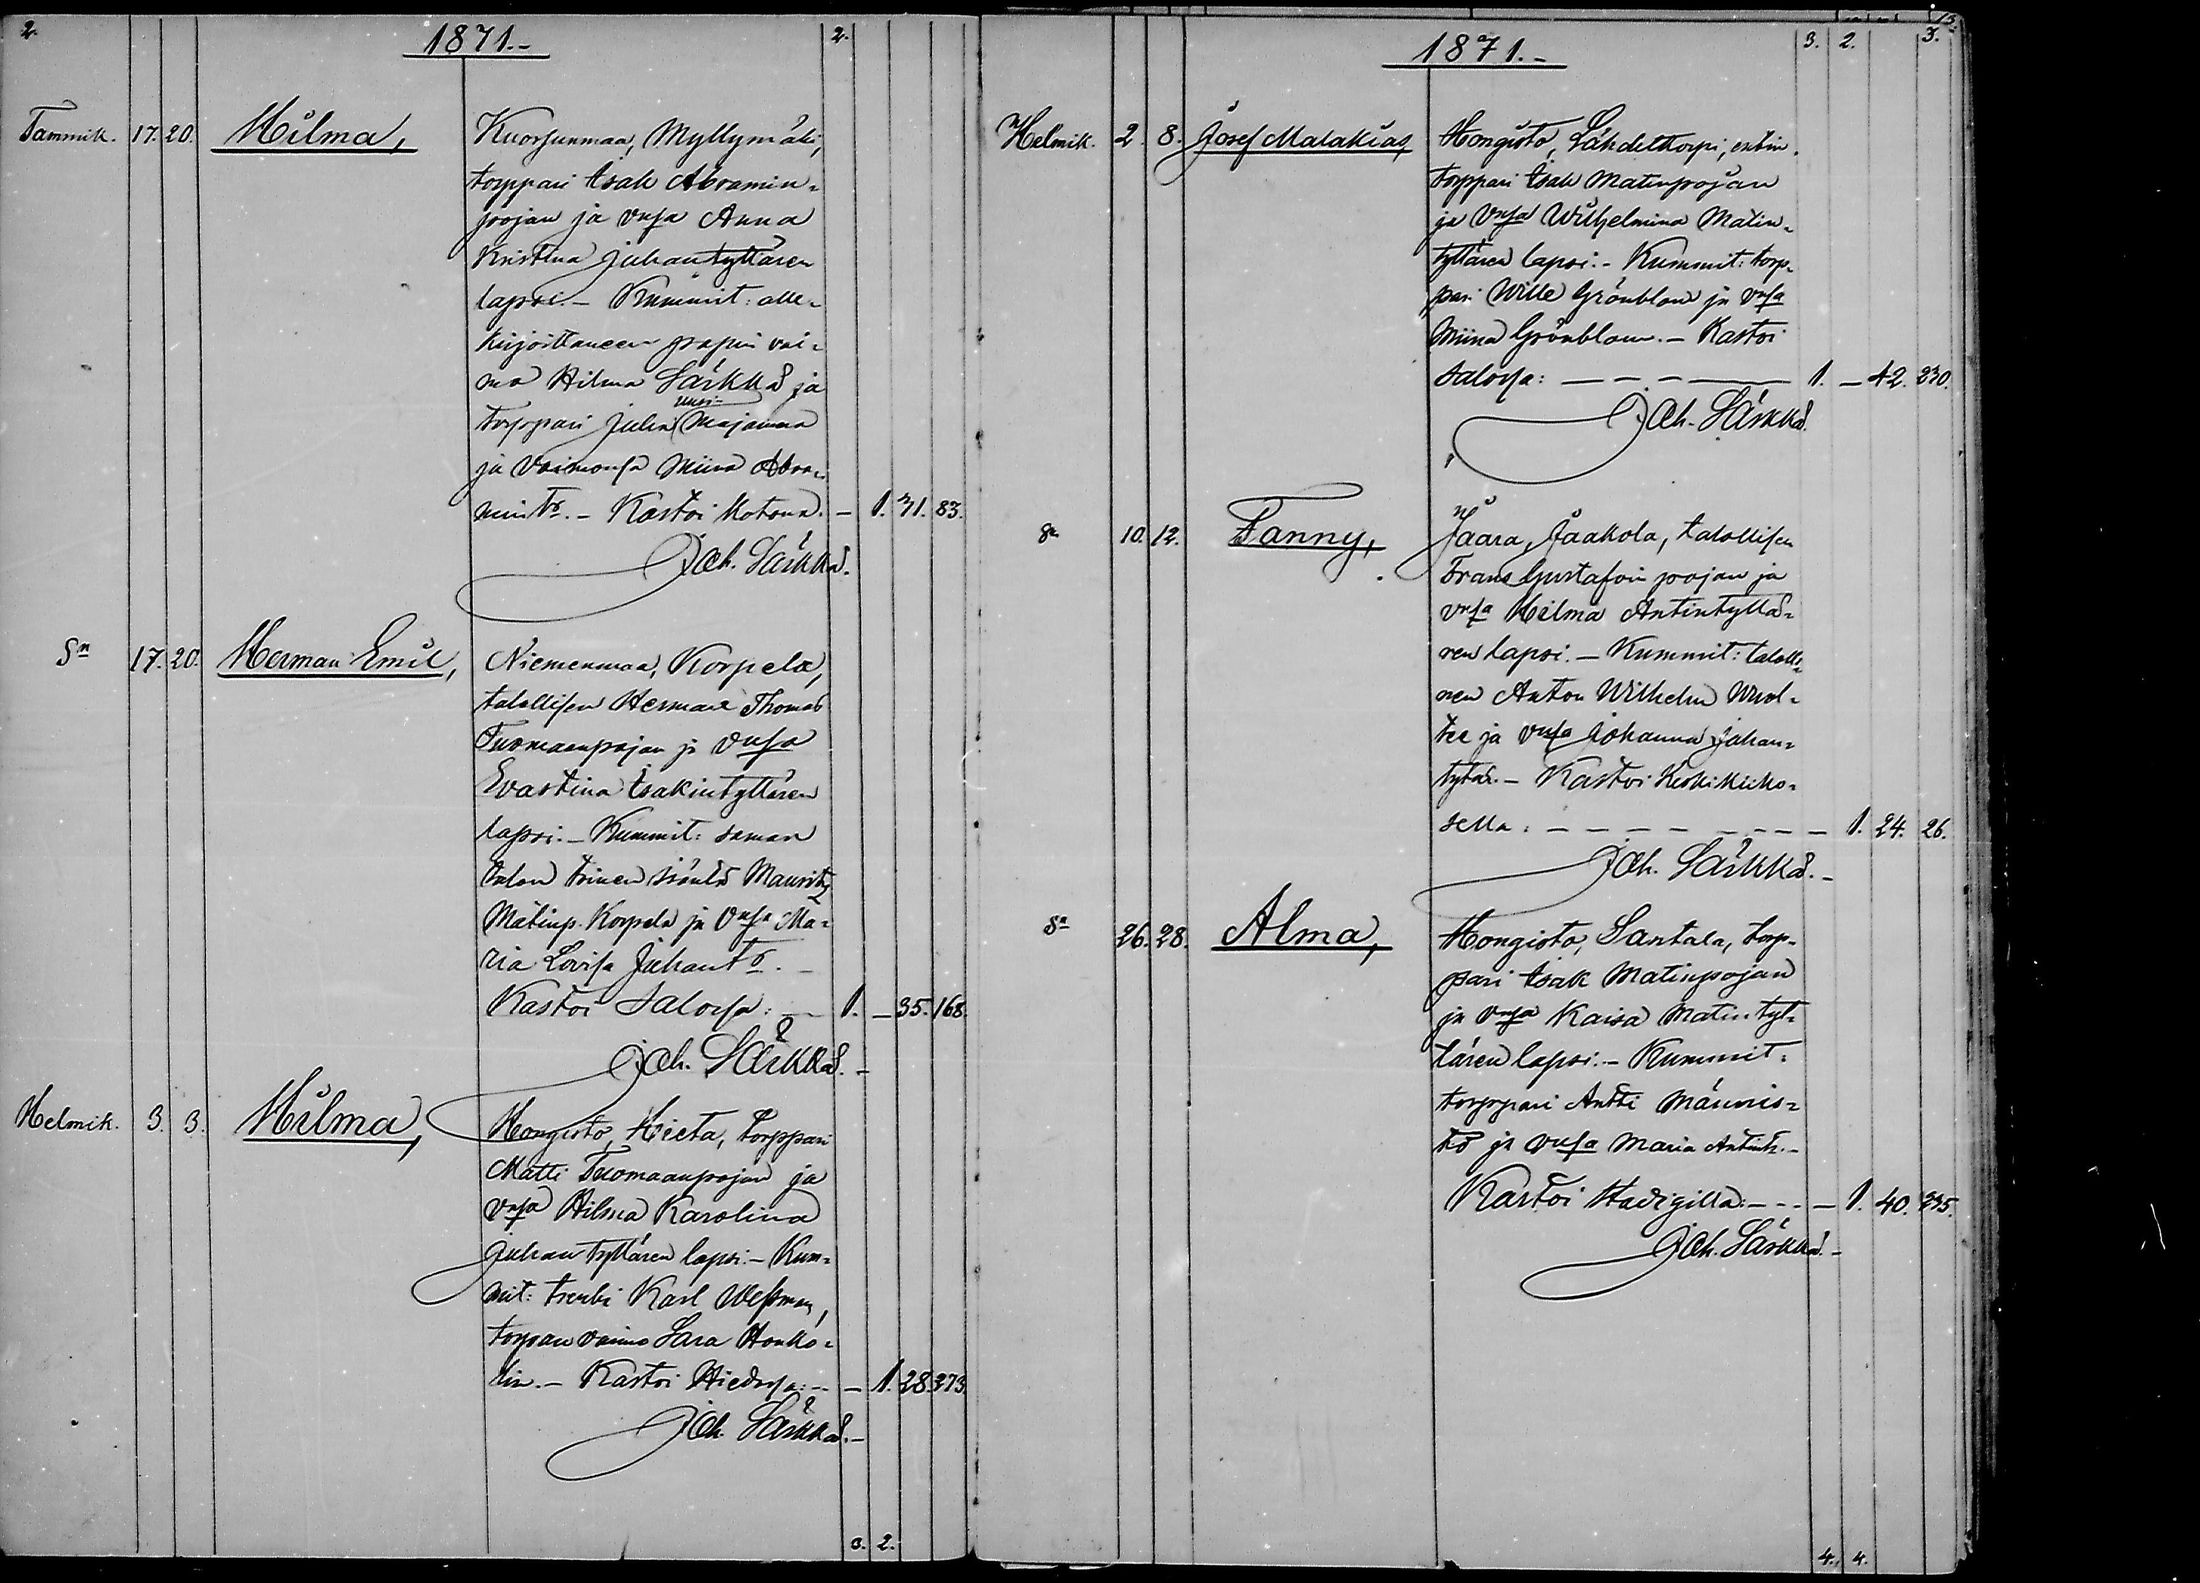 2. 1871.- 2.
Tammik. 17. 20. Hilma, Kuorsunmaa, Myllymäki,
torppari Isak Abramin-
pojan ja vnsa Anna
Kristina Juhantyttären
lapsi. - Kummit: alle-
kirjoittaneen papin vai-
mo Hilma Särkkä ja
uusi-
torppari Juha Majamaa
ja vaimonsa Miina Abra-
mint:r. - Kastoi kotona. - 1. 71. 83.
Joh. Särkkä.
Sn 17. 20. Herman Emil, Niemenmaa, Korpela,
talollisen Herman Thomas
Tuomaanpojan ja vnsa
Evastina Isakintyttären
lapsi. - Kummit: saman
talon toinen isäntä Mauritz
Matinp. Korpela ja vnsa Ma-
ria Lovisa Juhant:r. -
Kastoi talossa: - 1. - 35. 168.
Joh. Särkkä. -
Helmik. 3. 3. Hilma, Hongisto, Hieta, torppari
Matti Tuomaanpojan ja
vnsa Hilma Karolina
Juhantyttären lapsi. - Kum-
mit: trenki Karl Wessman,
torpan vaimo Sara Honko-
lin. - Kastoi Hiedassa: - - 1. 28. 373.
Joh. Särkkä. -
3. 2.
1871.- 3. 2. 3.
Helmik. 2 8. Josef Malakias, Hongisto, Lähdekorpi, entin.
torppari Isak Matinpojan
ja vnsa Wilhelmina Matin-
tyttären lapsi. - Kummit: torp-
pari Wille Grönblom ja vnsa
Miina Grönblom. - Kastoi
talossa: - - - - 1. - 42. 230.
Joh. Särkkä.
Sn 10. 12. Fanny, Jaara, Jaakola, talollisen
Frans Gustafvin pojan ja
vnsa Hilma Antintyttä-
ren lapsi. - Kummit: talolli-
nen Anton Wilhelm
ja vnsa Johanna Juhan-
tytär. - Kastoi Keskikiiko-
sella: - - - - - - - - 1. 24. 26.
Joh. Särkkä. -
Sn 26. 28. Alma, Hongisto, Santala, torp-
pari Isak Matinpojan
ja vnsa Kaisa Matintyt-
tären lapsi. - Kummit:
torppari Antti Männis-
tö ja vnsa Maria Antint:r. -
Kastoi - - - - 1. 40. 235.
Joh. Särkkä. -
4. 4.